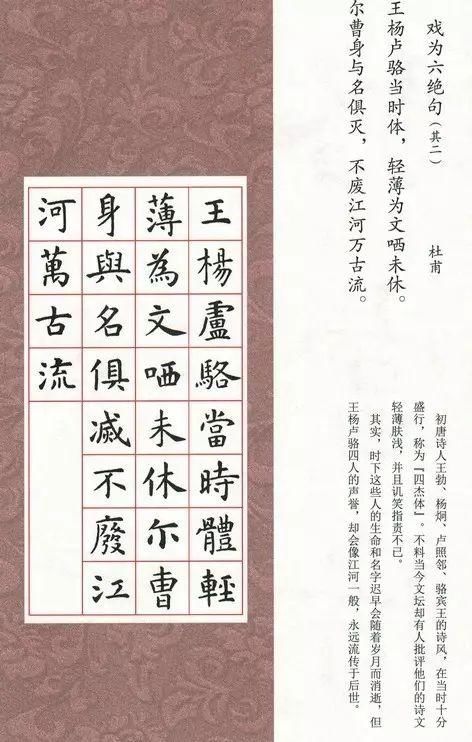 戏为六绝句（其二）
杜甫
王杨卢骆当时体，轻薄为文哂未休。
尔曹身与名俱灭，不废江河万古流。
初唐诗人王勃、杨炯、卢照邻、骆宾王的诗风，在当时十分
盛行，称为『四杰体』。不料当今文坛却有人批评他们的诗文
轻薄肤浅，并且讥笑指责不已。
其实，时下这些人的生命和名字迟早会随着岁月而消逝，但
王杨卢骆四人的声誉，却会像江河一般，永远流传于后世。
王楊盧駱當時體輕
薄為文哂未休尒曹
身與名俱滅不廢江
河萬古流